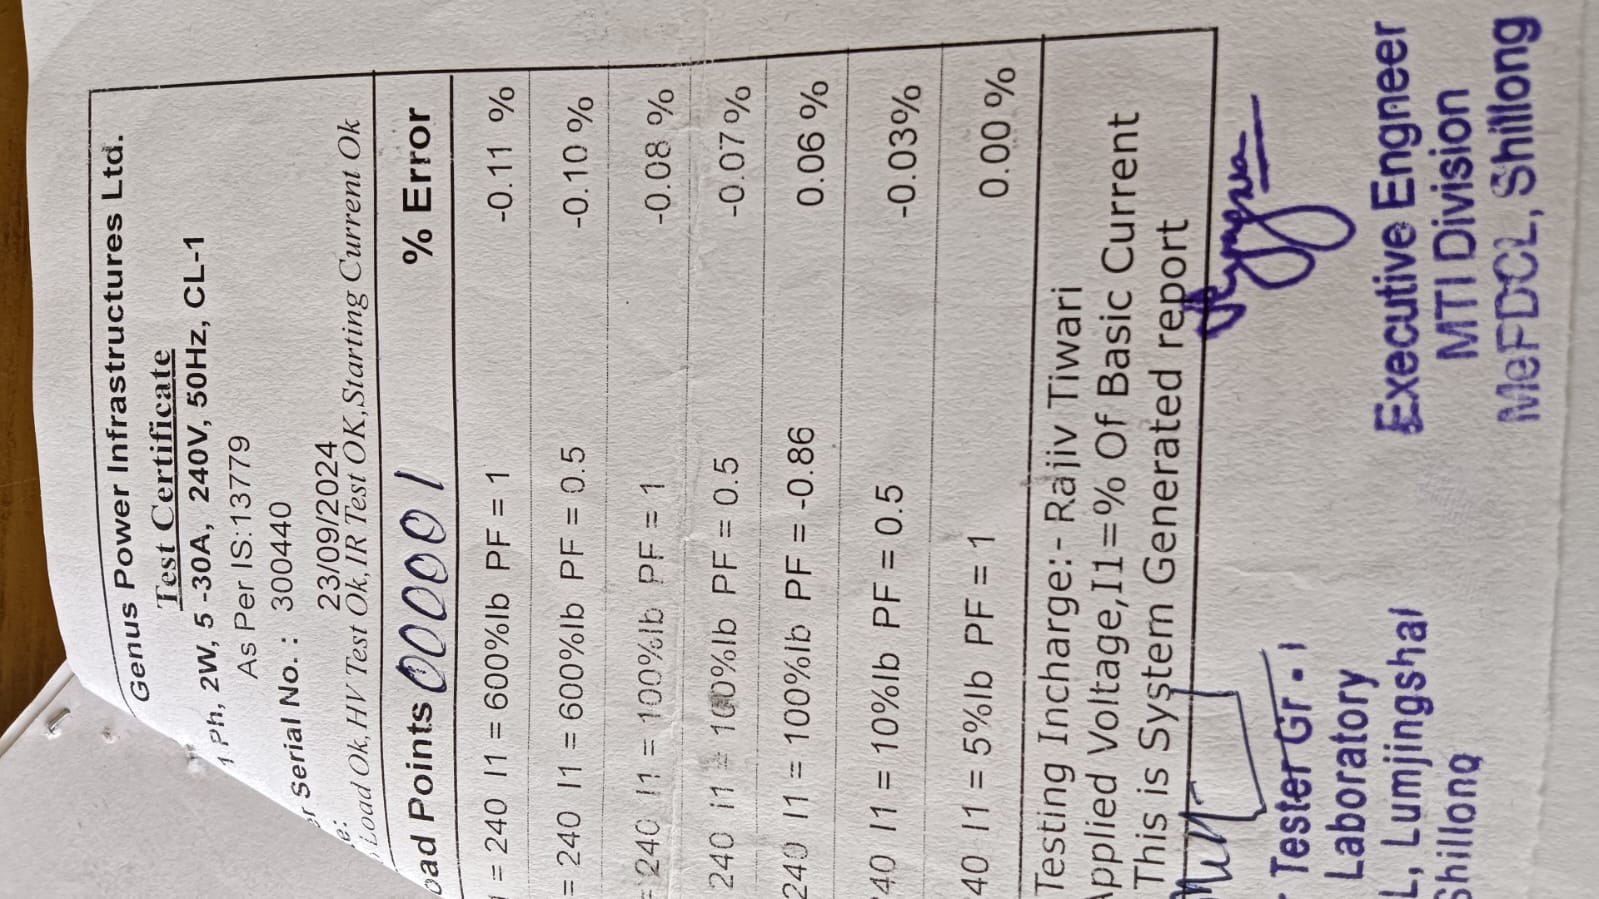 Genus Power Infrastructures Ltd.
Test Certificate
1 Ph, 2W, 5 -30A, 240V, 50Hz, CL-1
As Per IS:13779
Serial No. : 300440
23/09/2024
Load Ok,HV Test Ok,IR Test OK,Starting Current Ok
oad Points 000001 % Error
= 240 I1 = 600%Ib PF = 1 -0.11 %
= 240 I1 = 600%Ib PF = 0.5 -0.10 %
= 240 I1 = 100%Ib PF = 1 -0.08 %
240 I1 = 100%Ib PF = 0.5 -0.07 %
240 I1 = 100%Ib PF = -0.86 0.06 %
40 I1 = 10%Ib PF = 0.5 -0.03%
40 I1 = 5%Ib PF = 1 0.00 %
Testing Incharge:- Rajiv Tiwari
pplied Voltage,I1=% Of Basic Current
This is System Generated report
Tester Gr. I
Laboratory
L, Lumjingshai
Shillong
Executive Engneer
MTI Division
MePDCL, Shillong